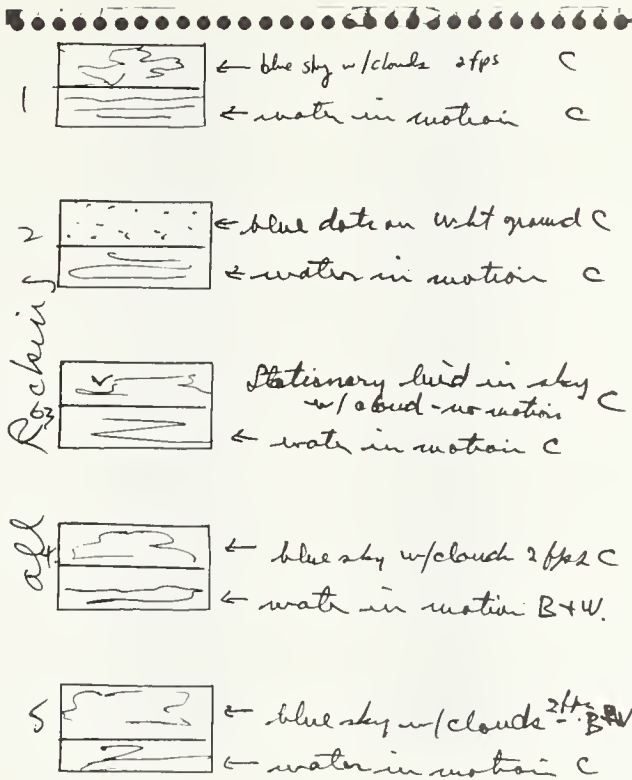 1
← blue sky w/clouds 2 fps C
← water in motion C
2
← blue dots on wht ground C
← water in motion C
3
Stationary bird in sky
w/cloud - no motion C
← water in motion C
4
← blue sky w/clouds 2 fps C
← water in motion B+W.
5
← blue sky w/clouds 2 fps B+W
← water in motion C
all Rocking